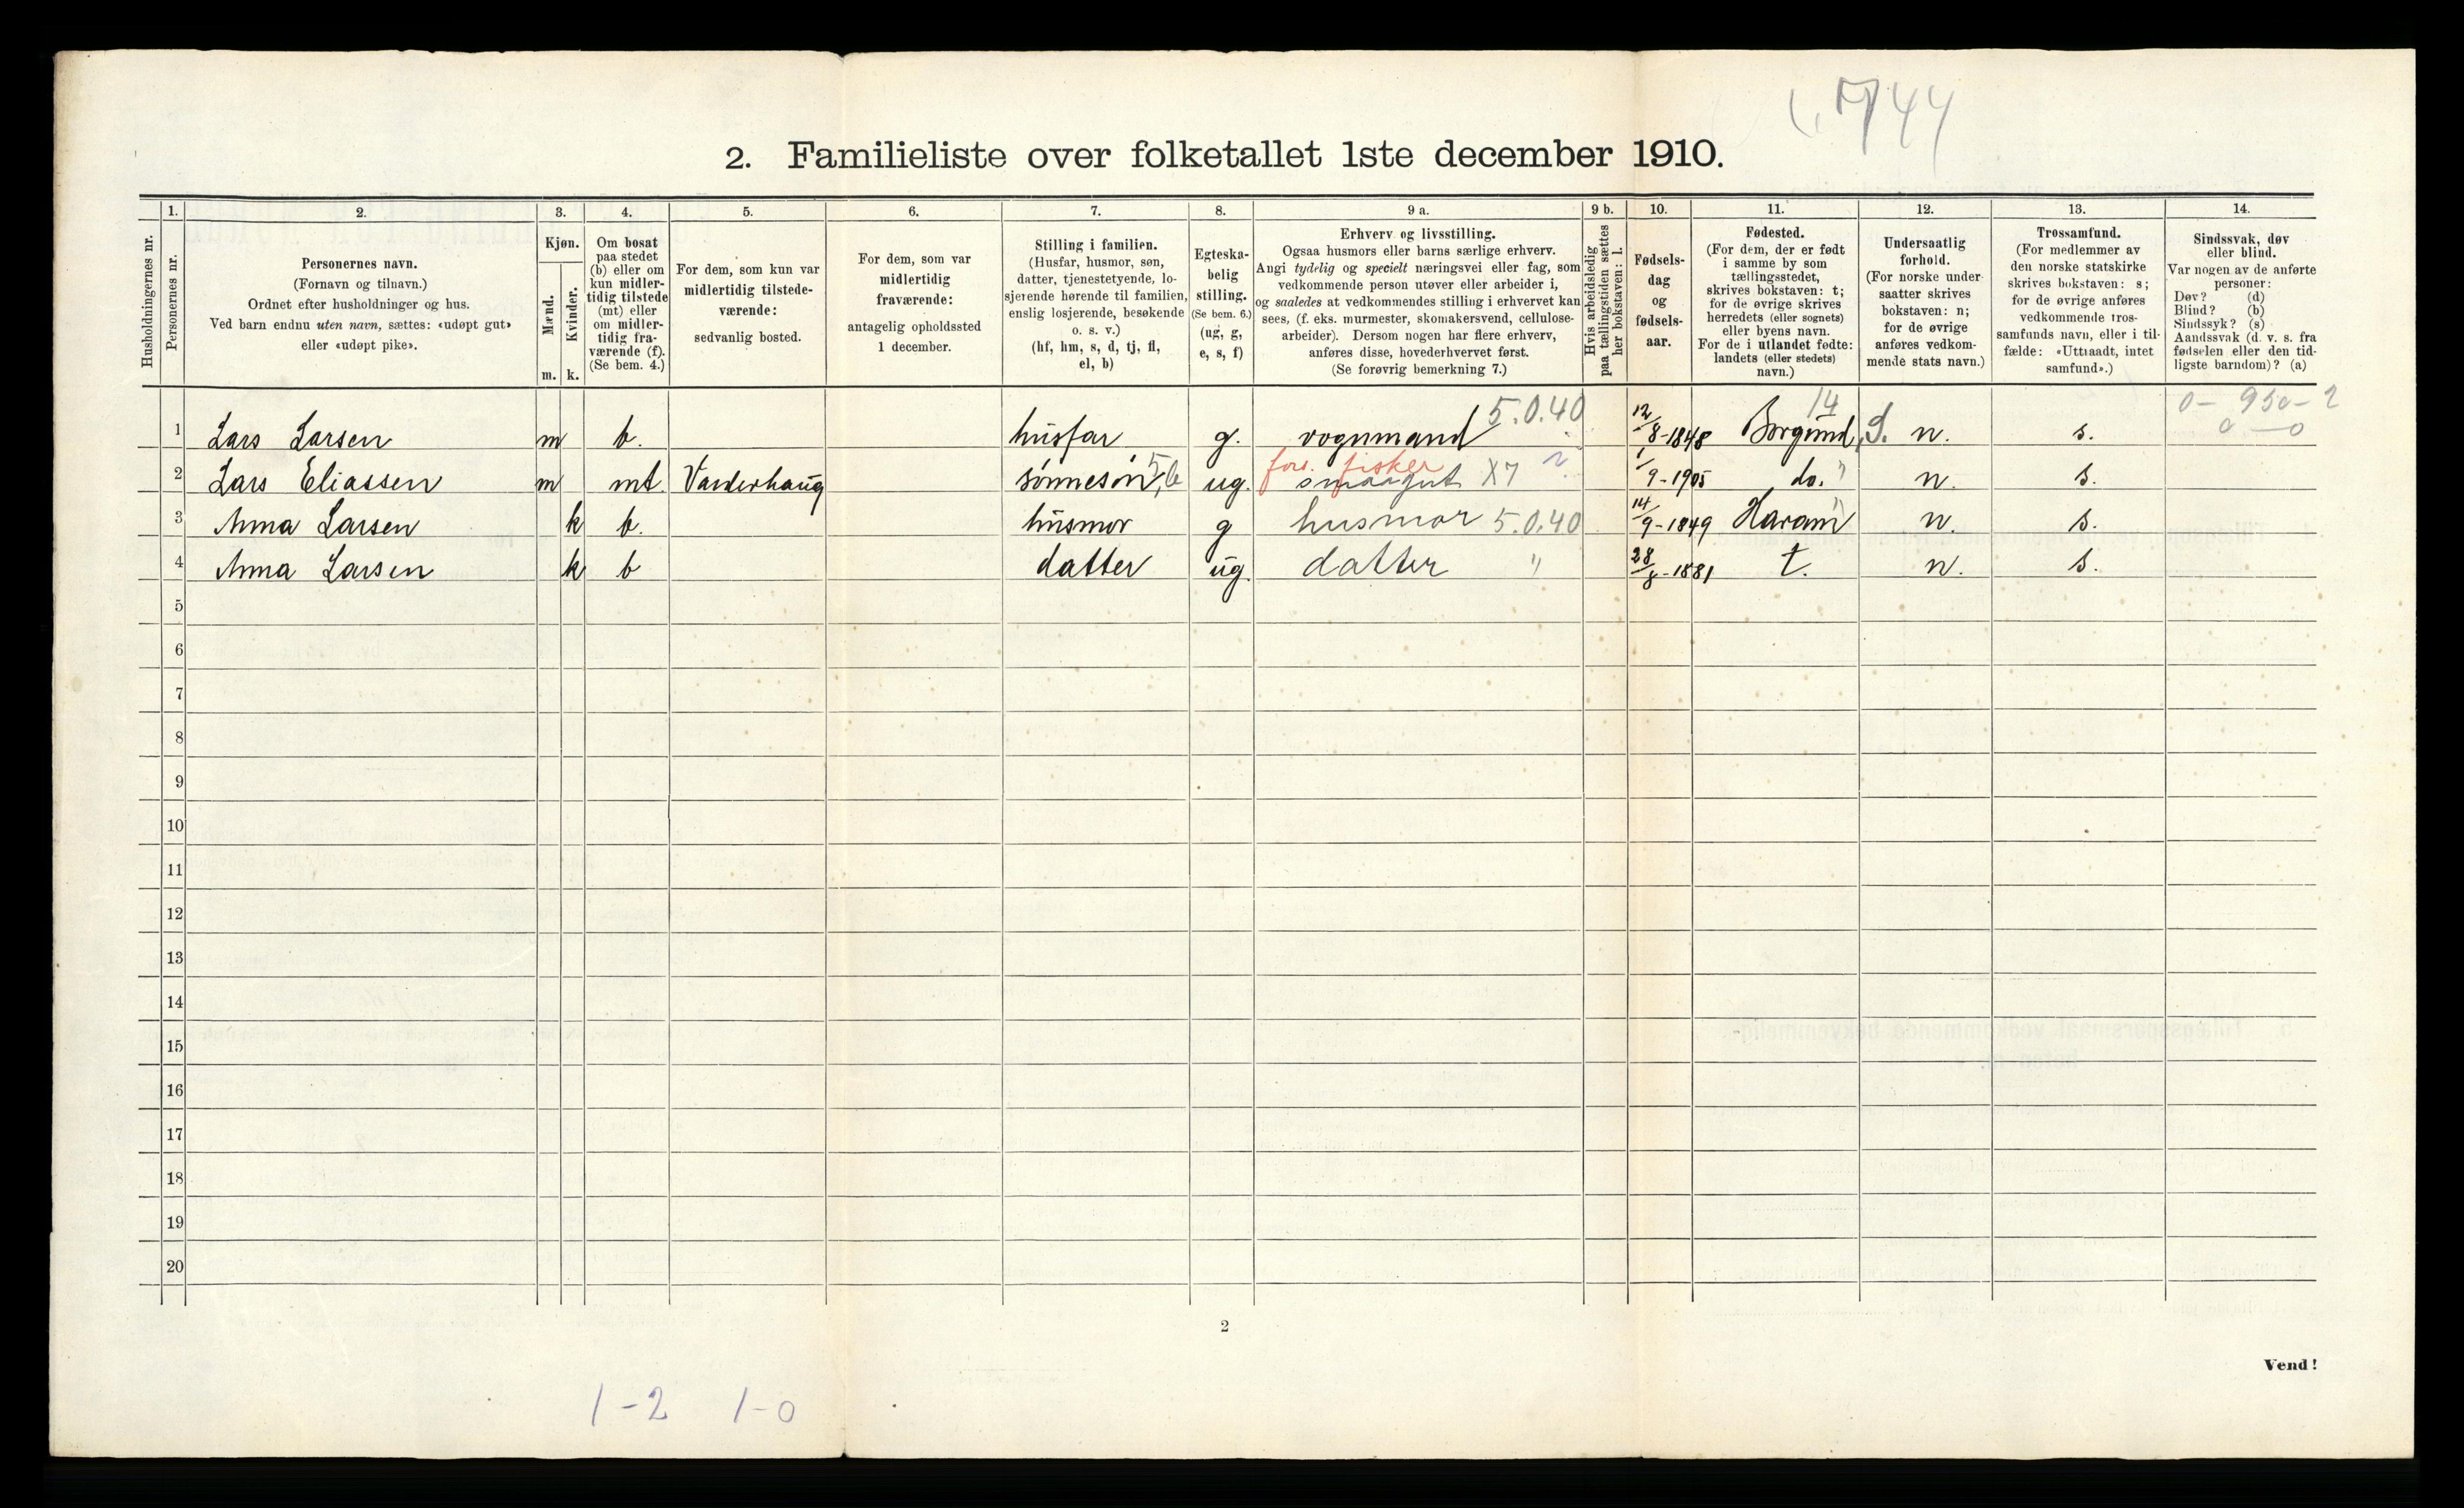 2. Familieliste over folketallet 1ste december 1910.
Husholdningernes nr.
1. Personernes nr.
2. Personernes navn.
(Fornavn og tilnavn.)
Ordnet efter husholdninger og hus.
Ved barn endnu uten navn, sættes: «udøpt gut»
eller «udøpt pike».
3. Kjøn.
Mænd. m.
Kvinder. k.
4. Om bosat
paa stedet
(b) eller om
kun midler-
tidig tilstede
(mt) eller
om midler-
tidig fra-
værende (f).
(Se bem. 4.)
5. For dem, som kun var
midlertidig tilstede-
værende:
sedvanlig bosted.
6. For dem, som var
midlertidig
fraværende:
antagelig opholdssted
1 december.
7. Stilling i familien.
(Husfar, husmor, søn,
datter, tjenestetyende, lo-
sjerende hørende til familien,
enslig losjerende, besøkende
o. s. v.)
(hf, hm, s, d, tj, fl,
el, b)
8. Egteska-
belig
stilling.
(Se bem. 6.)
(ug, g,
e, s, f)
9 a. Erhverv og livsstilling.
Ogsaa husmors eller barns særlige erhverv.
Angi tydelig og specielt næringsvei eller fag, som
vedkommende person utøver eller arbeider i,
og saaledes at vedkommendes stilling i erhvervet kan
sees, (f. eks. murmester, skomakersvend, cellulose-
arbeider). Dersom nogen har flere erhverv,
anføres disse, hovederhvervet først.
(Se forøvrig bemerkning 7.)
9 b. Hvis arbeidsledig
paa tællingstiden sættes
her bokstaven: l.
10. Fødsels-
dag
og
fødsels-
aar.
11. Fødested.
(For dem, der er født
i samme by som
tællingsstedet,
skrives bokstaven: t;
for de øvrige skrives
herredets (eller sognets)
eller byens navn.
For de i utlandet fødte:
landets (eller stedets)
navn.)
12. Undersaatlig
forhold.
(For norske under-
saatter skrives
bokstaven: n;
for de øvrige
anføres vedkom-
mende stats navn.)
13. Trossamfund.
(For medlemmer av
den norske statskirke
skrives bokstaven: s;
for de øvrige anføres
vedkommende tros-
samfunds navn, eller i til-
fælde: «Uttraadt, intet
samfund».)
14. Sindssvak, døv
eller blind.
Var nogen av de anførte
personer:
Døv? (d)
Blind? (b)
Sindssyk? (s)
Aandssvak (d. v. s. fra
fødselen eller den tid-
ligste barndom)? (a)
5.0.40 14 0 - 950 - 2
1 Lars Larsen m b. husfar g. vognmand 12/8-1848 Borgund, S. n. s. 0 - 0
fors. fisker
2 Lars Eliassen m mt Vanderhaug sønnesøn 5,6 ug. smaagut X7 1/9-1905 do. " n. s.
3 Anna Larsen k b. husmor g husmor 5.0.40 14/9-1849 Haram " n. s.
4 Anna Larsen k b datter ug. datter " 28/8-1881 t. n. s.
5
6
7
8
9
10
11
12
13
14
15
16
17
18
19
20
2
Vend!
1-2 1-0